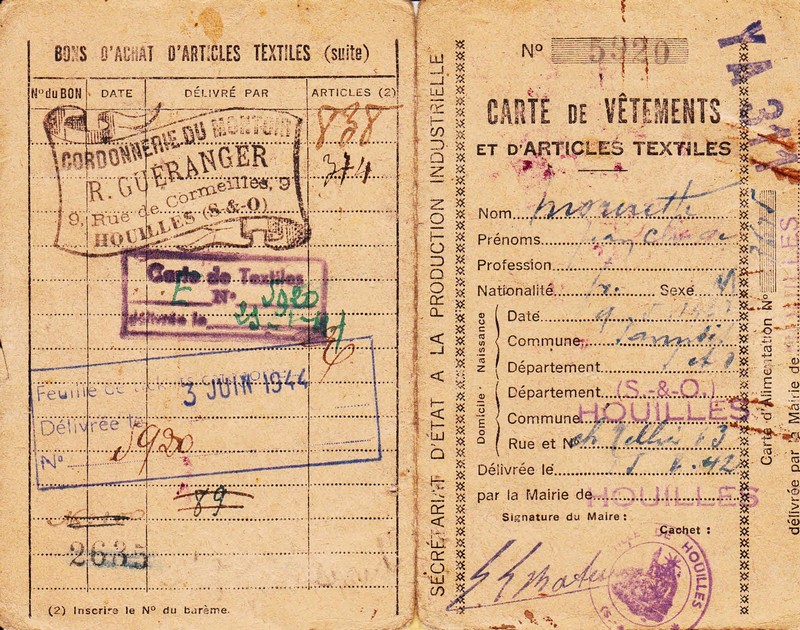 BONS D'ACHAT D'ARTICLES TEXTILES (suite)
N° du BON DATE DÉLIVRÉ PAR ARTICLES (2)
838
374
CORDONNERIE DU
R. GUERANGER
9, Rue de Cormeilles, 9
HOUILLES (S-&-O)
Carte de Textiles
E N° 5920
délivrée le
Feuille
3 JUIN 1944
Délivrée le
N° 5920
89
2635
(2) Inscrire le N° du barème.
SECRÉTARIAT D'ÉTAT A LA PRODUCTION INDUSTRIELLE
N° 5920
CARTE DE VÊTEMENTS
ET D'ARTICLES TEXTILES
Nom
Prénoms
Profession
Nationalité fr. Sexe
Naissance
Date
Commune
Département S et O
Domicile
Département (S.-&-O.)
Commune HOUILLES
Rue et N° 63
Délivrée le 5 4.42
par la Mairie de HOUILLES
Signature du Maire :
Cachet :
DE HOUILLES
Carte d'Alimentation N°
délivrée par la Mairie de
HOUILLES